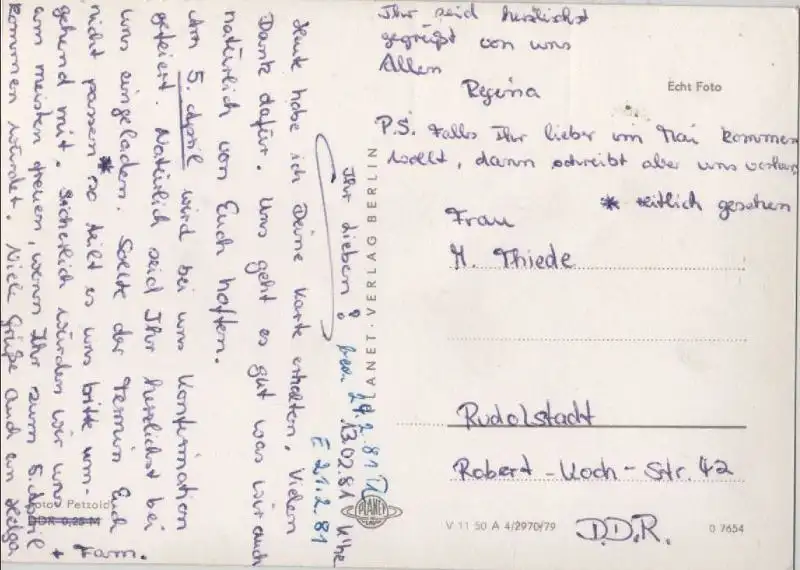 Ihr Lieben!
13.02.81
Heute habe ich Deine Karte erhalten, Vielen
Dank dafür. Uns geht es gut was wir auch
natürlich von Euch hoffen.
Am 5. April wird bei uns Konfirmation
gefeiert. Natürlich seid Ihr herzlichst bei
uns eingeladen. Sollte der Termin Euch
nicht passen * so teilt es uns bitte um-
gehend mit. Sicherlich würden wir uns
am meisten freuen, wenn Ihr zum 5. April
kommen würdet. Viele Grüße auch an Helga
+ Fam.
Ihr seid herzlichst
gegrüßt von uns
Allen
Regina
P.S. Falls Ihr lieber im Mai kommen
wollt, dann schreibt aber uns vorher
* zeitlich gesehen
E 21.2.81
24.2.81
Echt Foto
Frau
H. Thiede
Rudolstadt
Robert-Koch-Str. 42
D.D.R.
PLANET-VERLAG BERLIN
PLANET
Foto: Petzold
DDR 0,25 M
V 11 50 A 4/2970/79
0 7654